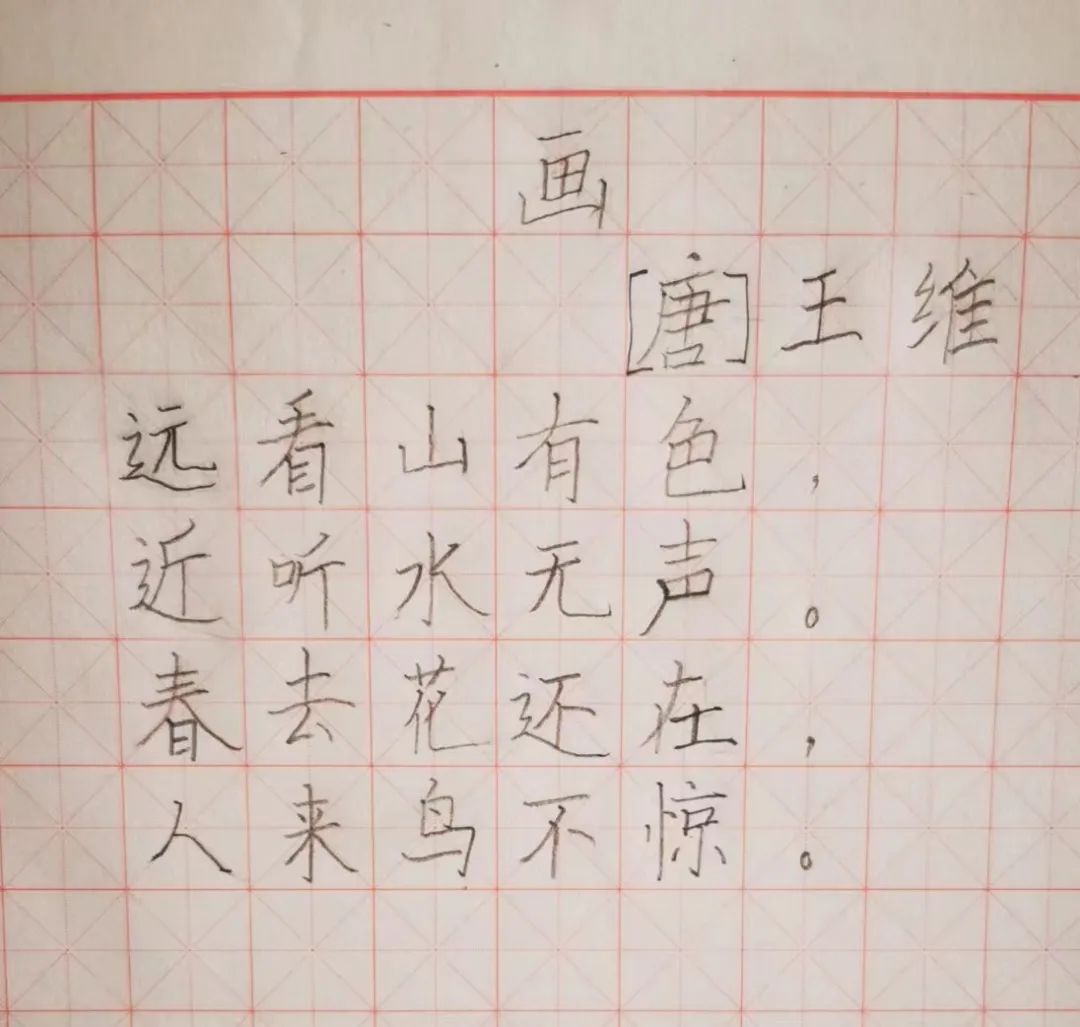 画
[唐]王维
远看山有色，
近听水无声。
春去花还在，
人来鸟不惊。